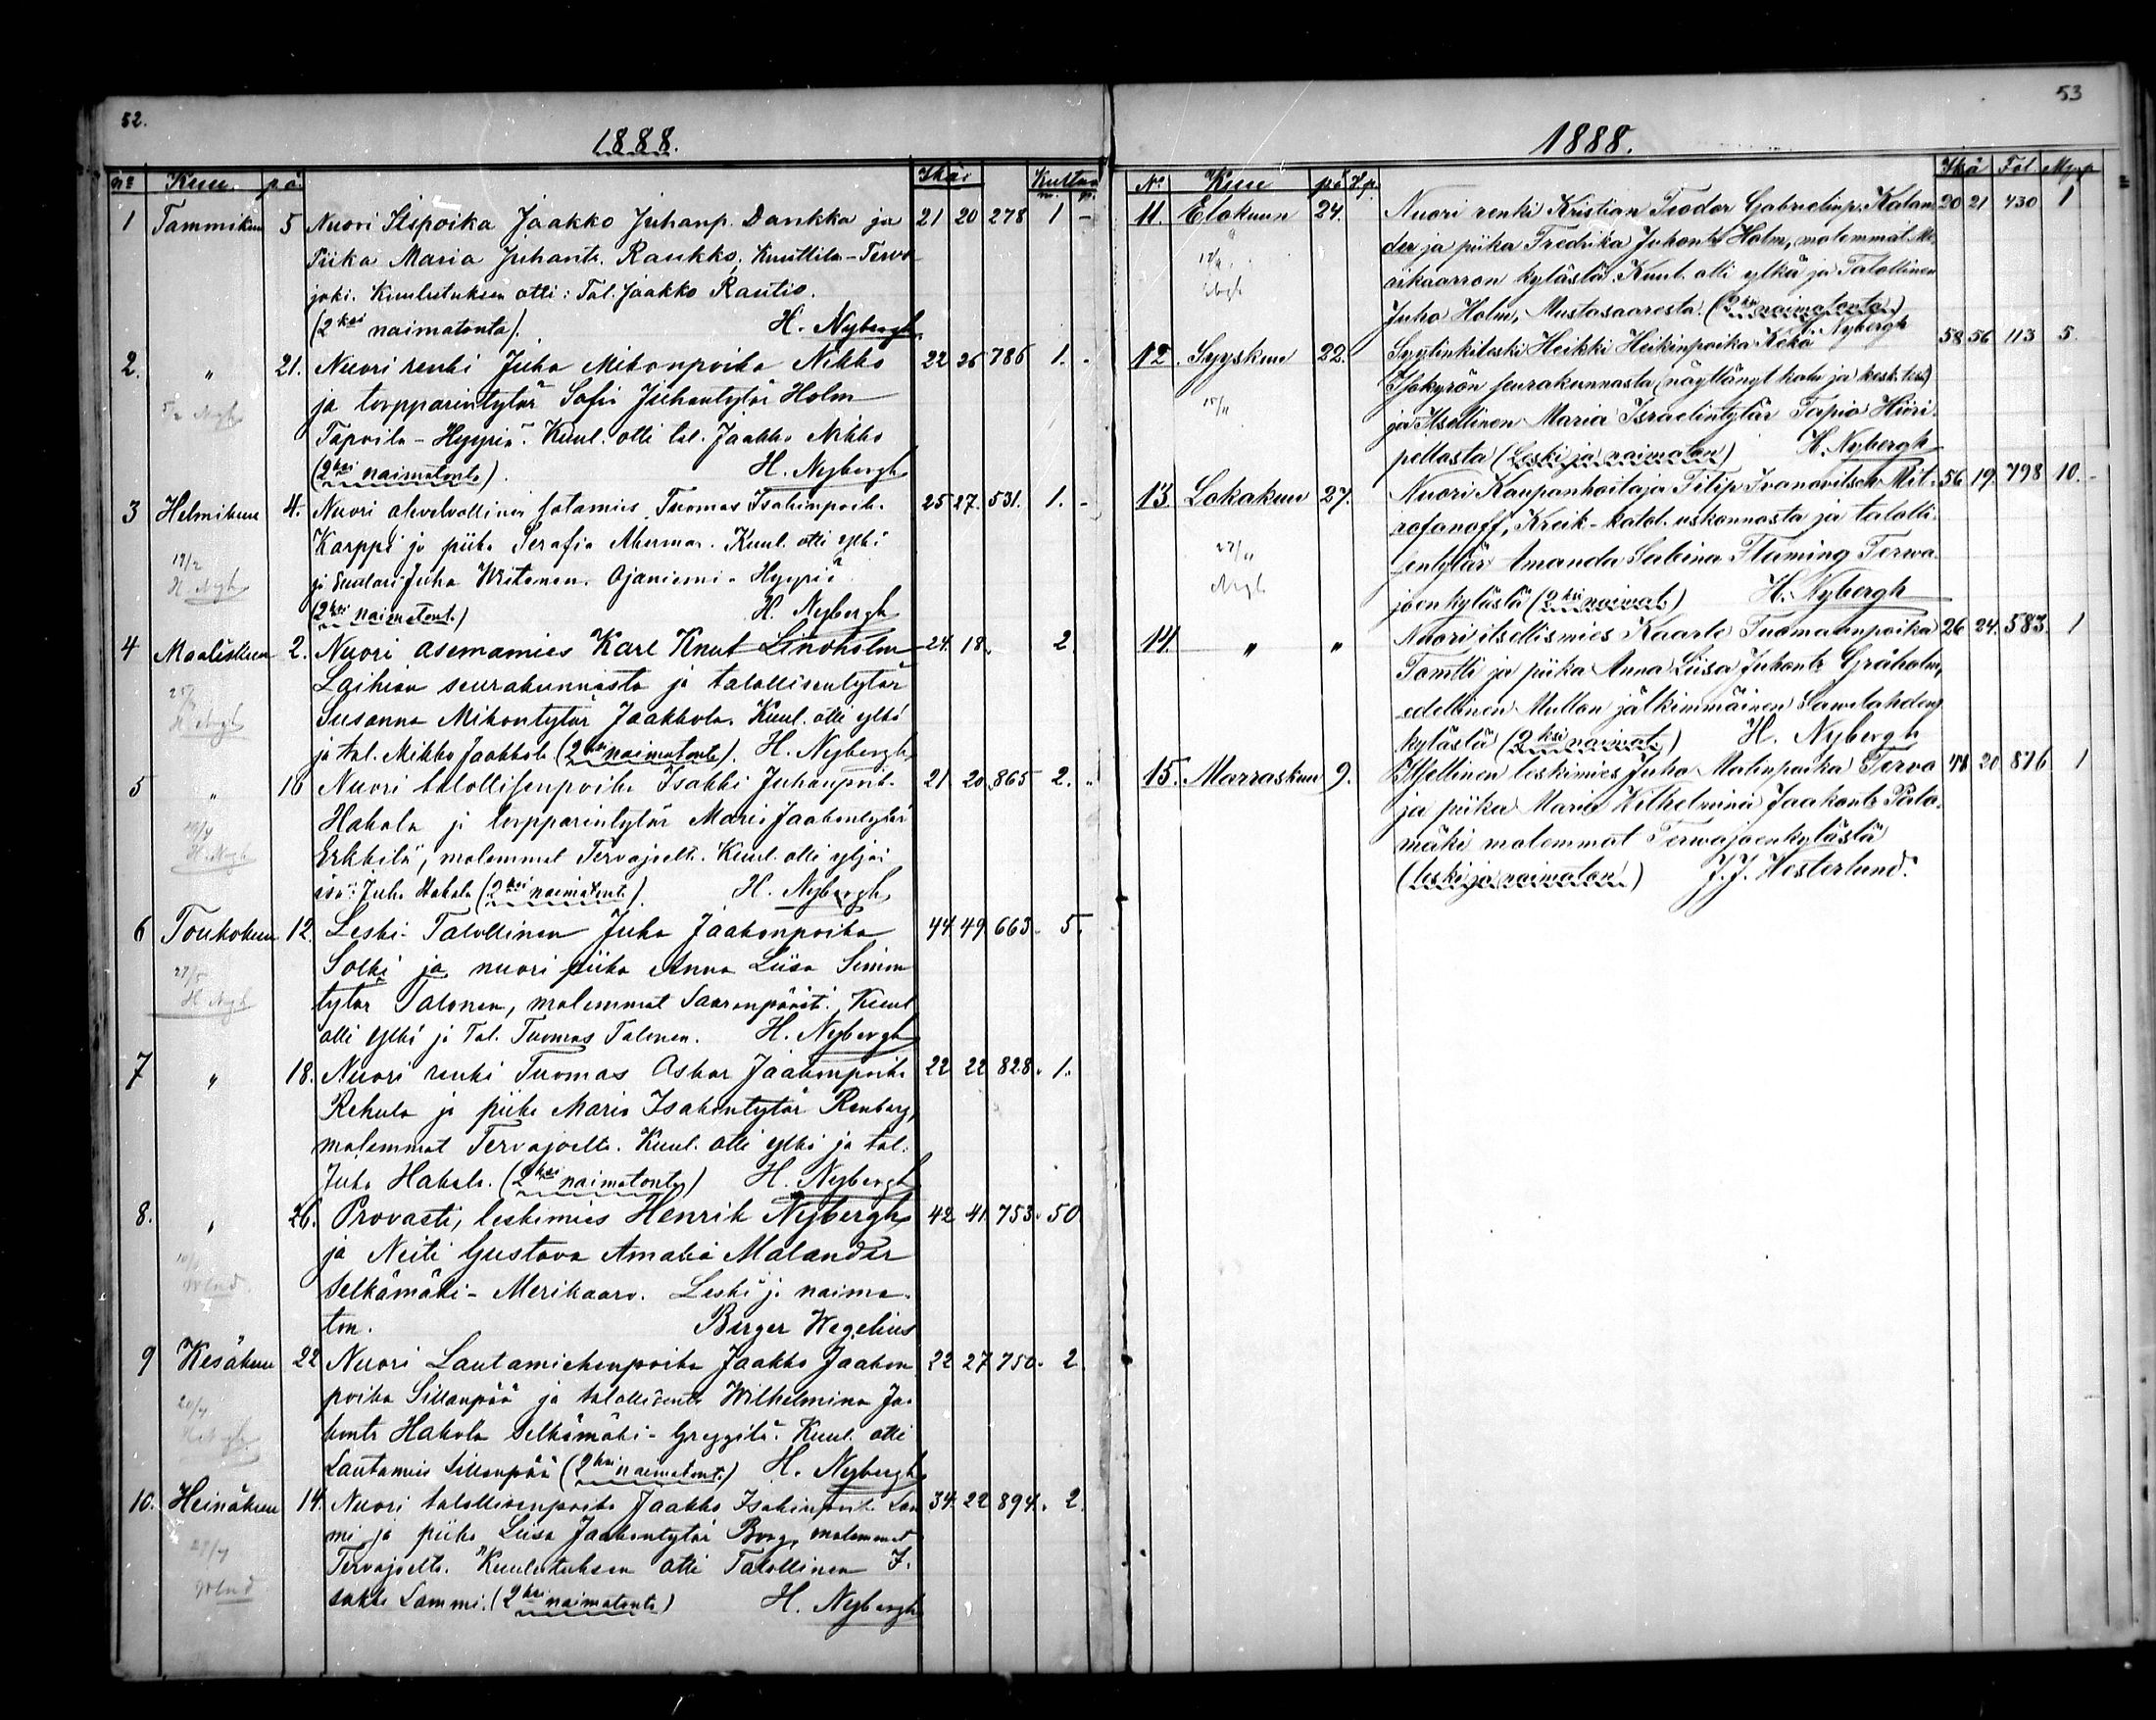 52.
1888.
No Kuu. pä. Ikä: Kuttaa
m. p.
1 Tammikuu 5 Nuori Itspoika Jaakko Juhanp. Dankka ja 21 20 278 1 -
Piika Maria Juhant. Raukko, Kuuttila-Tervo
joki. Kuulutuksen otti: Tal. Jaakko Rautio.
(2ksi naimatonta). H. Nybergh
2. " 21. Nuori renki Juha Mikonpoika Nikko 22 26 786 1. -
ja torpparintytär Sofia Juhontytär Holm
Tapoila-Hyyriä. Kuul. otti tal. Jaakko Nikko
(2ksi naimatonta). H. Nybergh
3 Helmikuu 4. Nuori alevelvollinen sotamies Tuomas Isakinpoika 25 27. 531. 1. -
Karppi ja piika Serafia Akerman. Kuul. otti ylkä
19/2
H. Nygh
ja Juha Witanen. Ojaniemi-Hyyriä
(2ksi naimatont.) H. Nybergh
4 Maaliskuu 2. Nuori asemamies Karl Knut Lindholm 24. 18. 2.
Laihian seurakunnasta ja talollisentytär
25/3
H. Nygh
Susanna Mikontytär Jaakkola. Kuul. otti ylkä
ja tal. Mikko Jaakkola (2ksi naimatonta). H. Nybergh
5 " 16 Nuori talollisenpoika Isakki Juhanpoik. 21 20 865 2. "
Hakala ja torpparintytär Maria Jaakontytär
H. Nygh
Erkkilä, molemmat Tervajoelt. Kuul. otti yljän
isä: Juha Hakala (2ksi naimatont.). H. Nybergh
6 Toukokuu 12. Leski-Talollinen Juha Jaakonpoika 44 49 663 5.
Solki ja nuori piika Anna Liisa Simon
27/5
H. Nygh
tytär Talonen, molemmat Saarenpäästä. Kuul
otti ylkä ja Tal. Tuomas Talonen. H. Nybergh
7 " 18. Nuori renki Tuomas Oskar Jaakonpoika 22 22 828. 1.
Rekula ja piika Maria Isakintytär Renberg,
molemmat Tervajoelta. Kuul. otti ylkä ja tal.
Juha Hakala. (2ksi naimatonta) H. Nybergh
8. " 26. Provasti, leskimies Henrik Nybergh 42 41 753. 50.
ja Neiti Gustava Amalia Malander
Selkämäki-Merikaaro. Leski ja naima-
ton. Birger Wegelius
9 Kesäkuu 22 Nuori Lautamiehenpoika Jaakko Jaakon 22 27 750. 2.
poika Sillanpää ja talollisent. Wilhelmina Jaa
kont. Hakola Selkämäki-Greggilä. Kuul. otti
Lautamies Sillanpää (2ksi naimatont.) H. Nybergh
10. Heinäkuu 14. Nuori talollisenpoika Jaakko Isakinpoik. Lam 34. 22 894. 2.
mi ja piika Liisa Jaakontytär Borg, molemmat
Tervajoelta. Kuulutuksen otti Talollinen I-
sakki Lammi. (2ksi naimatonta) H. Nybergh
53
1888.
No Kuu pä. Ikä Fol Mrk p
11. Elokuun 24. Nuori renki Kristian Teodor Gabrielinp. Kalan 20 21 430 1
der ja piika Fredrika Juhont. Holm, molemmat Me-
rikaarron kylästä. Kuul. otti ylkä ja Talollinen
Juho Holm, Mustasaaresta. (2ksi naimatonta)
Nybergh
12. Syyskuu 22. Syytinkileski Heikki Heikinpoika Kekä 58 56 113 5.
Isokyrön seurakunnasta (näyttänyt kah ja kesk. tod)
15/11
ja Itsellinen Maria Israelintytär Tapio Hiiri-
pellosta (Leski ja naimaton) H. Nybergh
13. Lokakuu 27. Nuori Kaupanhoitaja Filip Ivanovitsch Mit- 56 19. 798 10. -
rofanoff, Kreik-katol. uskonnosta ja talolli-
27/11
Nygh
sentytär Amanda Sabina Flaming Terwa-
joenkylästä (2ksi naimat) H. Nybergh
14. " " Nuori itsellismies Kaarle Tuomaanpoika 26 24. 583. 1
Tomtti ja piika Anna Liisa Juhont. Gråholm,
edellinen Mullan jälkimmäinen Sawilahden
kylästä (2ksi naimat) H. Nybergh
15. Marraskuu 9. Itsellinen leskimies Juha Matinpoika Terwo 48 20 876 1
ja piika Maria Wilhelmina Jaakont. Pala-
mäki molemmat Terwajoenkylästä
(leski ja naimaton) J. J. Westerlund.